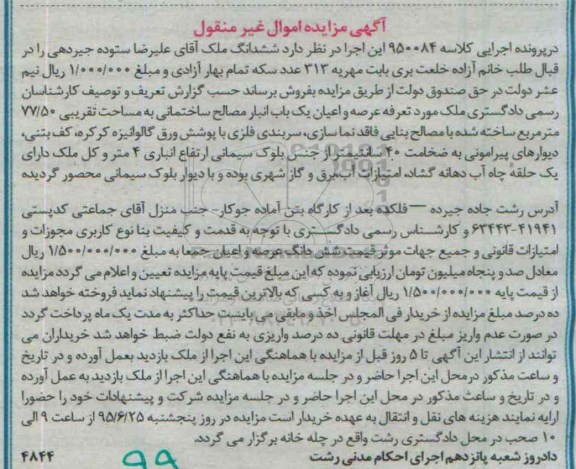 آگهی مزایده اموال غیر منقول
درپرونده اجرایی کلاسه ۹۵۰۰۸۴ این اجرا در نظر دارد ششدانگ ملک آقای علیرضا ستوده جیردهی را در
قبال طلب خانم آزاده خلعت بری بابت مهریه ۳۱۳ عدد سکه تمام بهار آزادی و مبلغ ۱/۰۰۰/۰۰۰ ریال نیم
عشر دولت در حق صندوق دولت از طریق مزایده بفروش برساند حسب گزارش تعریف و توصیف کارشناسان
رسمی دادگستری ملک مورد تعرفه عرصه و اعیان یک باب انبار مصالح ساختمانی به مساحت تقریبی ۷۷/۵۰
مترمربع ساخته شده با مصالح بنایی فاقد نما سازی، سربندی فلزی با پوشش ورق گالوانیزه کرکره، کف بتنی،
دیوارهای پیرامونی به ضخامت ۴۰ سانتیمتر از جنس بلوک سیمانی ارتفاع انباری ۴ متر و کل ملک دارای
یک حلقه چاه آب دهانه گشاد، امتیازات آب،برق و گاز شهری بوده و با دیوار بلوک سیمانی محصور گردیده
آدرس رشت جاده جیرده – فلکده بعد از کارگاه بتن آماده جوکار- جنب منزل آقای جماعتی کدپستی
۴۱۹۴۱-۶۳۴۴۳ و کارشناس رسمی دادگستری با توجه به قدمت و کیفیت بنا نوع کاربری مجوزات و
امتیازات قانونی و جمیع جهات موثر قیمت شش دانگ عرصه و اعیان جمعا به مبلغ ۱/۵۰۰/۰۰۰/۰۰۰ ریال
معادل صد و پنجاه میلیون تومان ارزیابی نموده که این مبلغ قیمت پایه مزایده تعیین و اعلام می گردد مزایده
از قیمت پایه ۱/۵۰۰/۰۰۰/۰۰۰ ریال آغاز و به کسی که بالاترین قیمت را پیشنهاد نماید فروخته خواهد شد
ده درصد مبلغ مزایده از خریدار فی المجلس اخذ و مابقی می بایست حداکثر به مدت یک ماه پرداخت گردد
در صورت عدم واریز مبلغ در مهلت قانونی ده درصد واریزی به نفع دولت ضبط خواهد شد خریداران می
توانند از انتشار این آگهی تا ۵ روز قبل از مزایده با هماهنگی این اجرا از ملک بازدید بعمل آورده و در تاریخ
و ساعت مذکور درمحل این اجرا حاضر و در جلسه مزایده با هماهنگی این اجرا از ملک بازدید به عمل آورده
و در تاریخ و ساعت مذکور در محل این اجرا حاضر و در جلسه مزایده شرکت و پیشنهادات خود را حضورا
ارایه نمایند هزینه های نقل و انتقال به عهده خریدار است مزایده در روز پنجشنبه ۹۵/۶/۲۵ از ساعت ۹ الی
۱۰ صحب در محل دادگستری رشت واقع در چله خانه برگزار می گردد.
دادروز شعبه پانزدهم اجرای احکام مدنی رشت
۴۸۴۴
۹۹